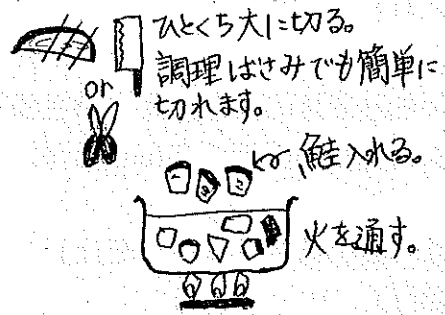 ひとくち大に切る。
調理ばさみでも簡単に
切れます。
or
鮭入れる。
火を通す。